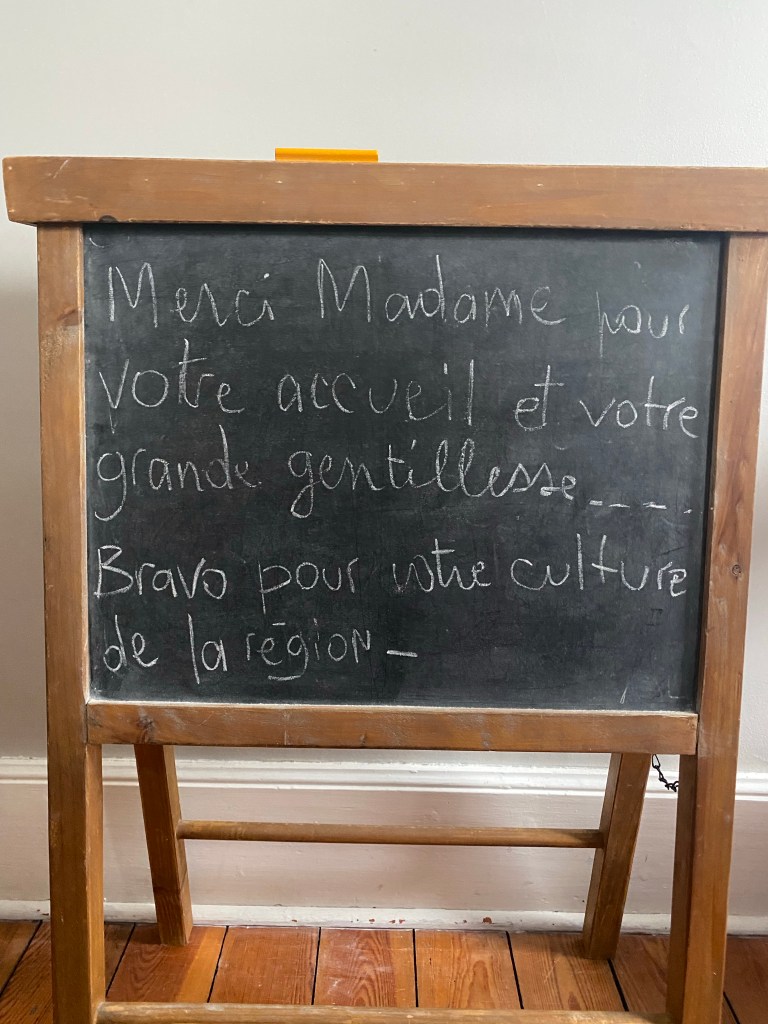 Merci Madame pour
votre accueil et votre
grande gentillesse_ _ _ _ .
Bravo pour votre culture
de la région _